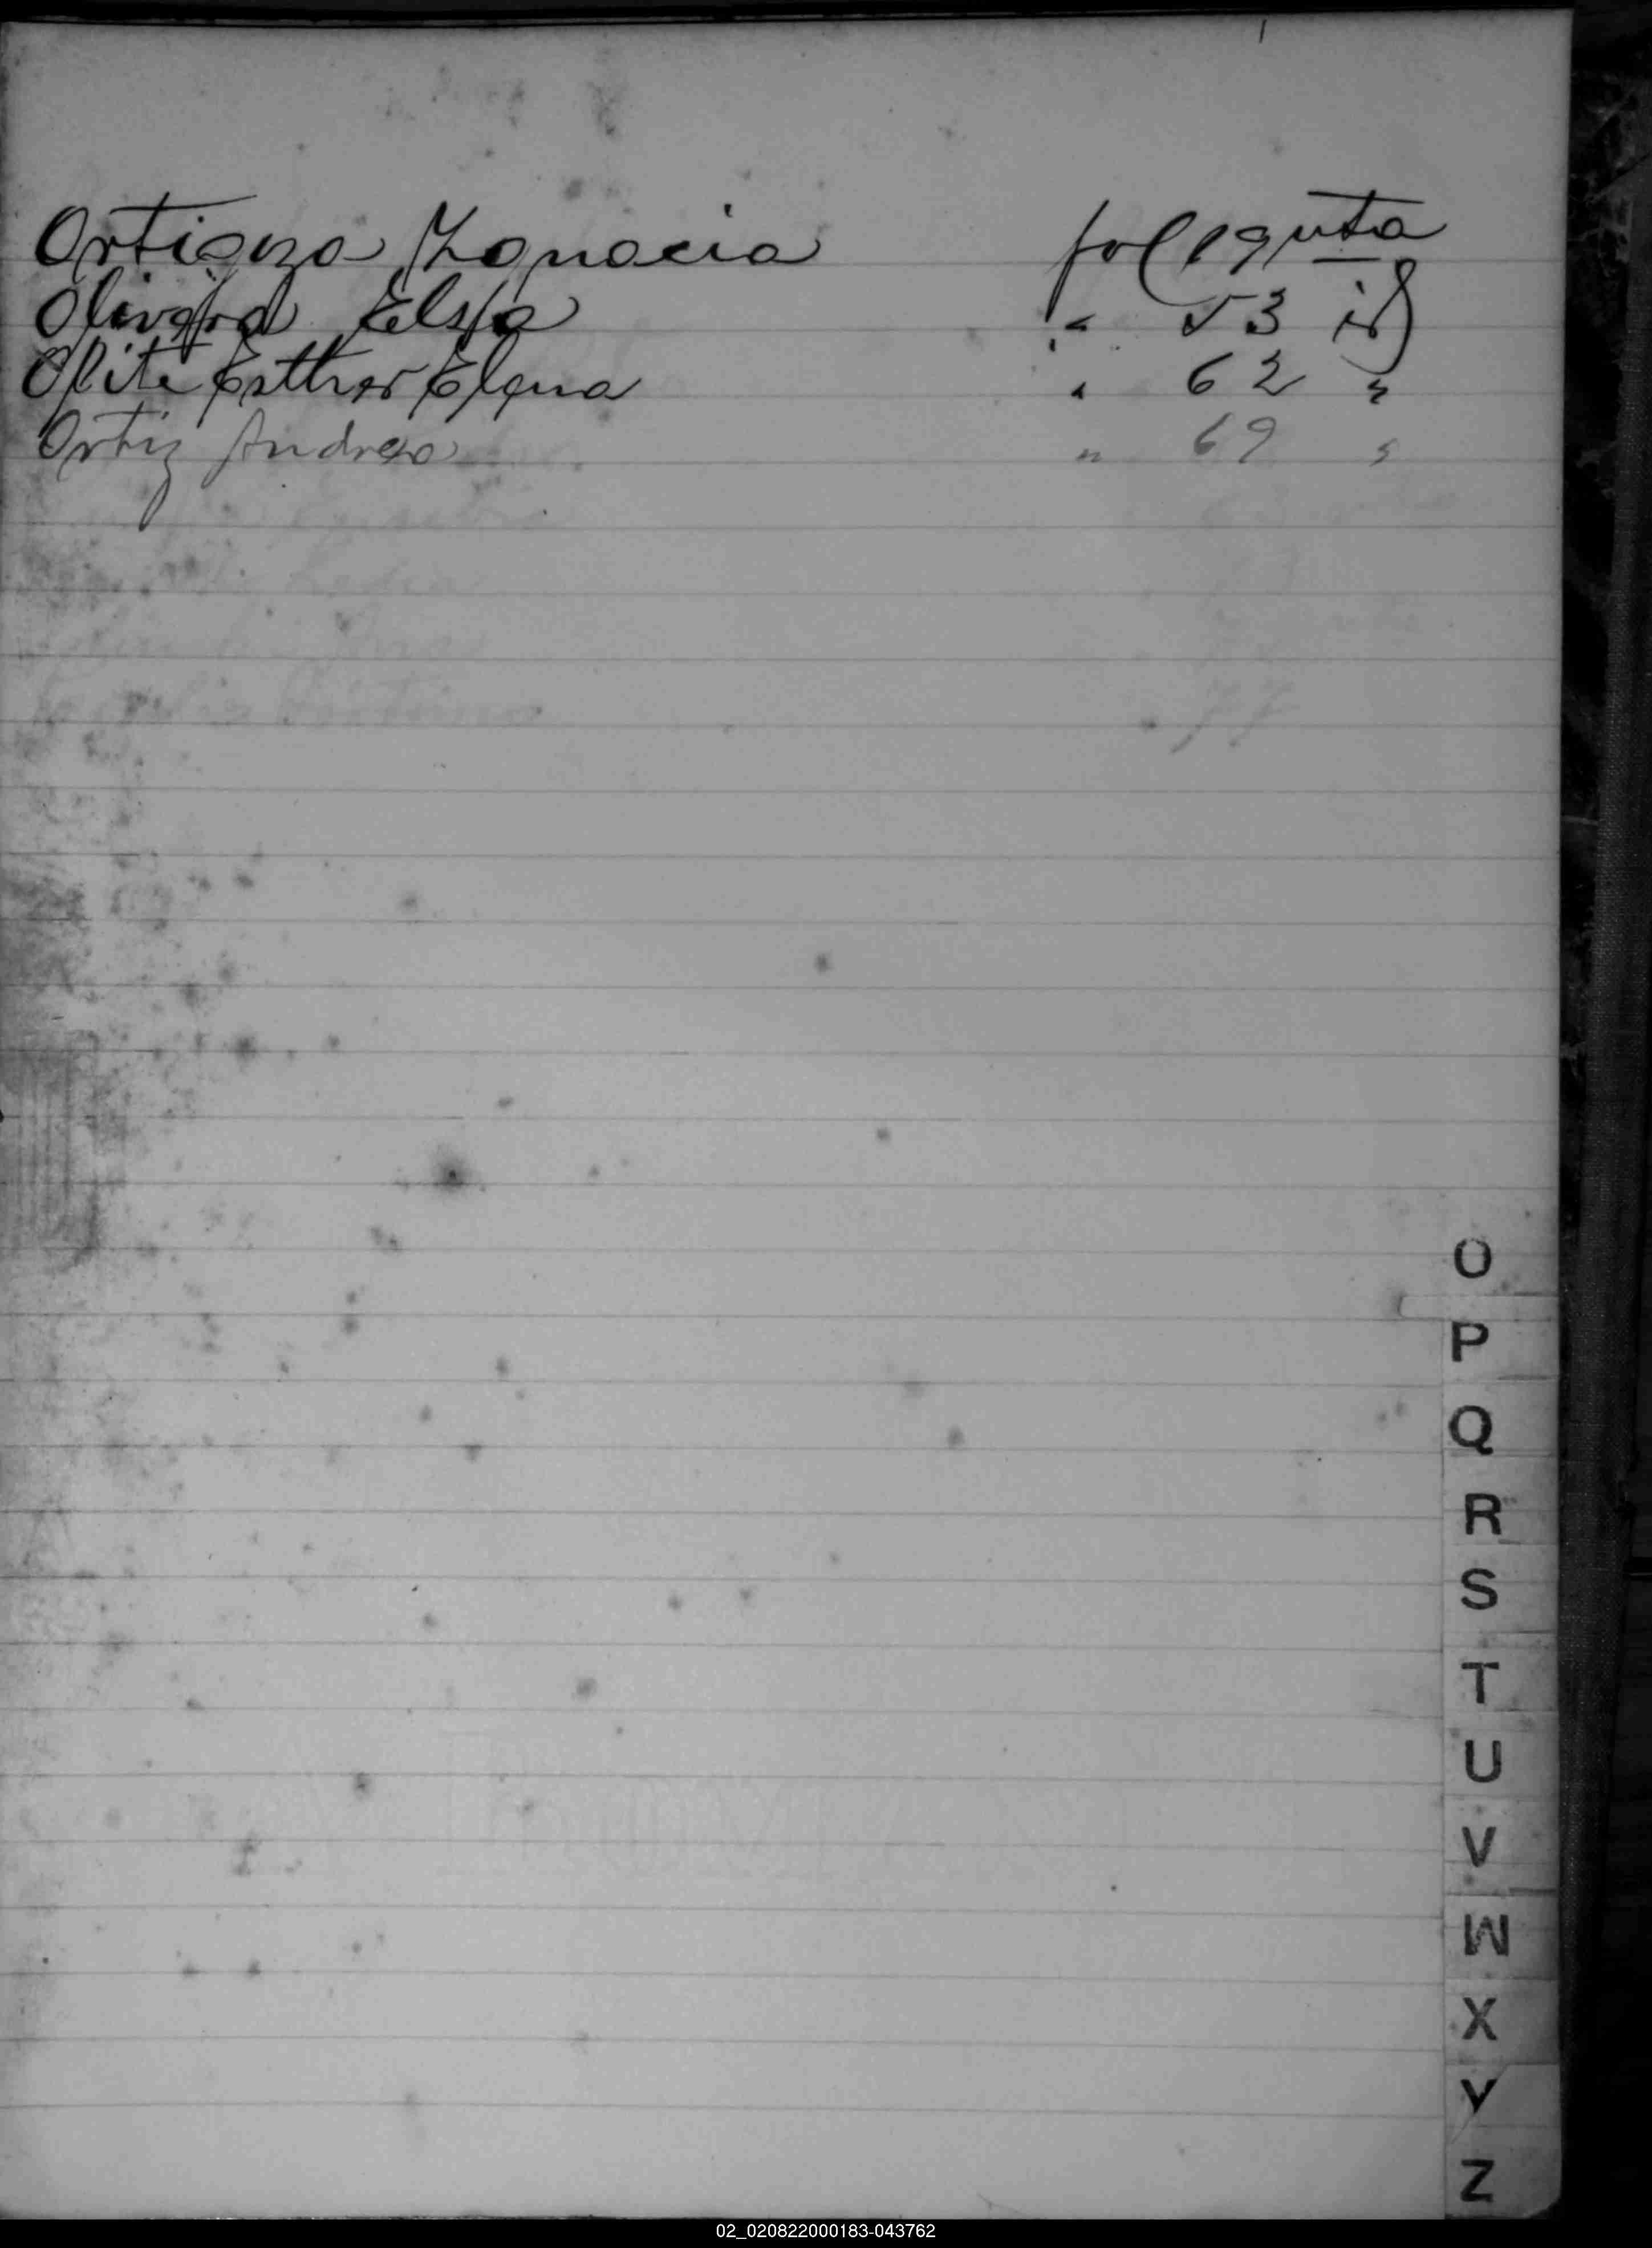 Ortigoza Ignacia fol 19 vta
Olivera Elsa " 53 id
Olite Esther Elena " 62 "
Ortiz Andrea " 69 "
77
O
P
Q
R
S
T
U
V
W
X
Y
Z
02_020822000183-043762